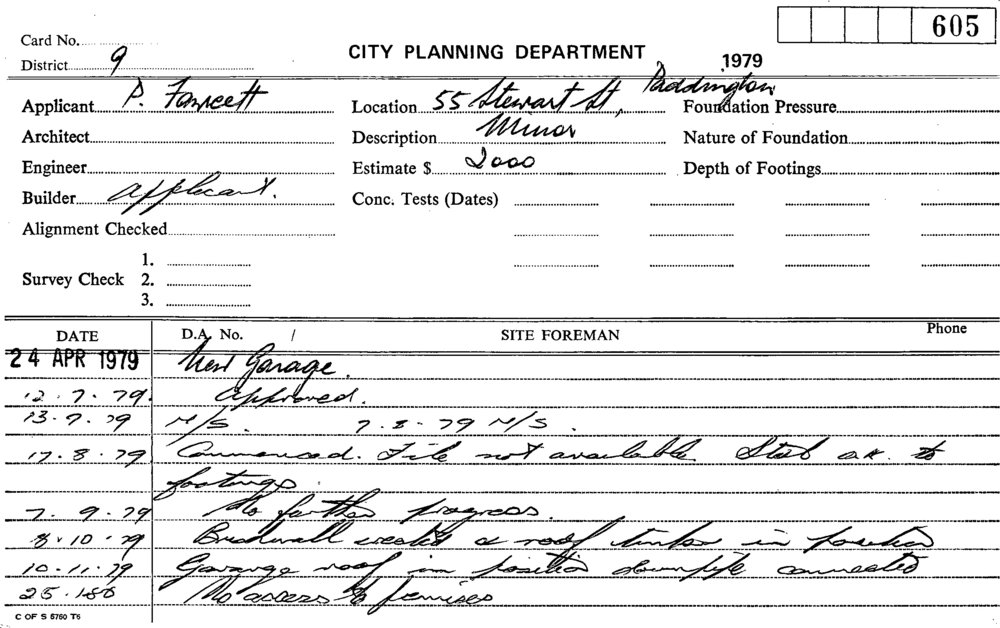 605
Card No.
CITY PLANNING DEPARTMENT
1979
District 9
Applicant P. Fawcett
Location 55 Stewart St, Paddington
Foundation Pressure
Architect
Description Minor
Nature of Foundation
Engineer
Estimate $ 2000
Depth of Footings
Builder Applicant.
Conc. Tests (Dates)
Alignment Checked
Survey Check
1.
2.
3.
DATE D.A. No. / SITE FOREMAN Phone
24 APR 1979 New Garage.
12.7.79 Approved.
13.7.79 N/S. 7.8.79 N/S.
17.8.79 Commenced. File not available. Slab o.k. to
footings.
7.9.79 No further progress.
8.10.79 erected & roof timber in position
10.11.79 Garage roof in position downpipe connected
25.1.80 No access to premises
C OF S 5760 T6